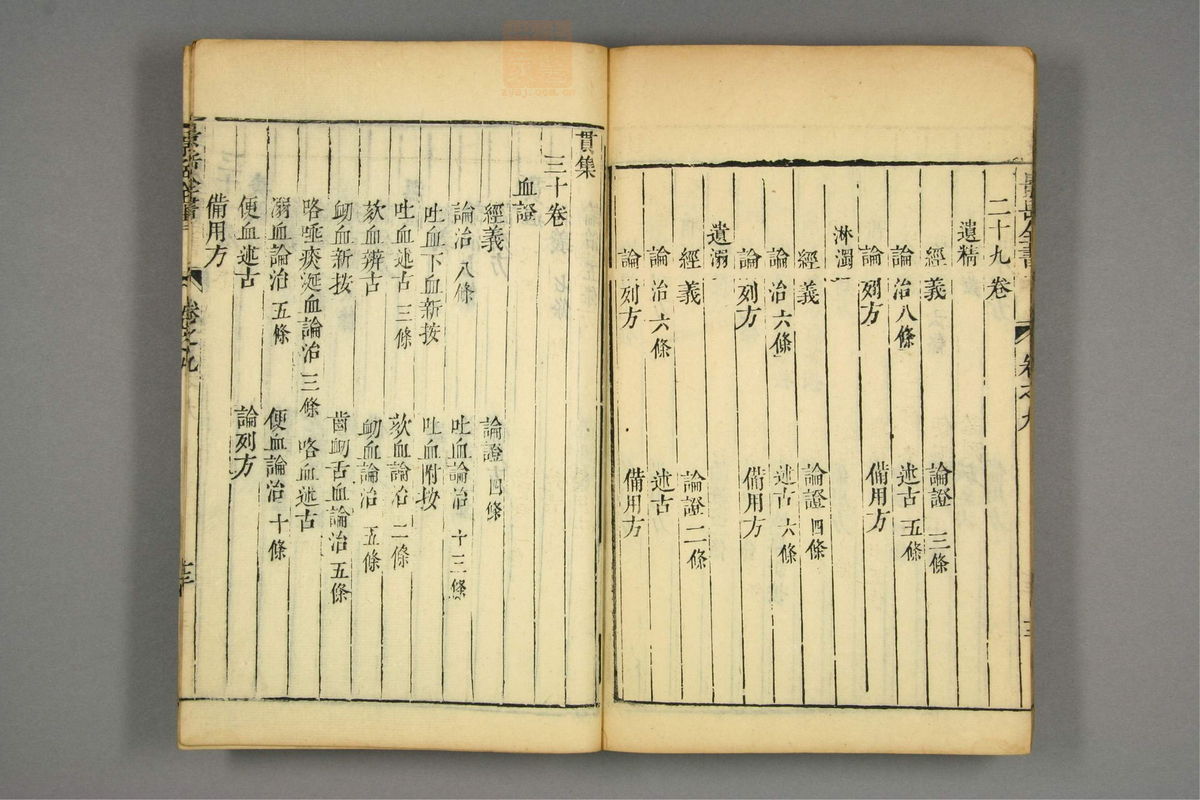 二十九卷
遺精
經義 論證 三條
論治 八條 述古 五條
論列方 備用方
淋濁
經義 論證 四條
論治 六條 述古 六條
論列方 備用方
遺溺
經義 論證 二條
論治 六條 述古
論列方 備用方
貫集
三十卷
血證
經義 論證 四條
論治 八條 吐血論治 十三條
吐血下血新按 吐血附按
吐血述古 三條 欬血論治 二條
欬血辨古 衂血論治 五條
衂血新按 齒衂舌血論治 五條
咯唾痰涎血論治 三條 咯血述古
溺血論治 五條 便血論治 十條
便血述古 論列方
備用方
景岳全書
卷之九